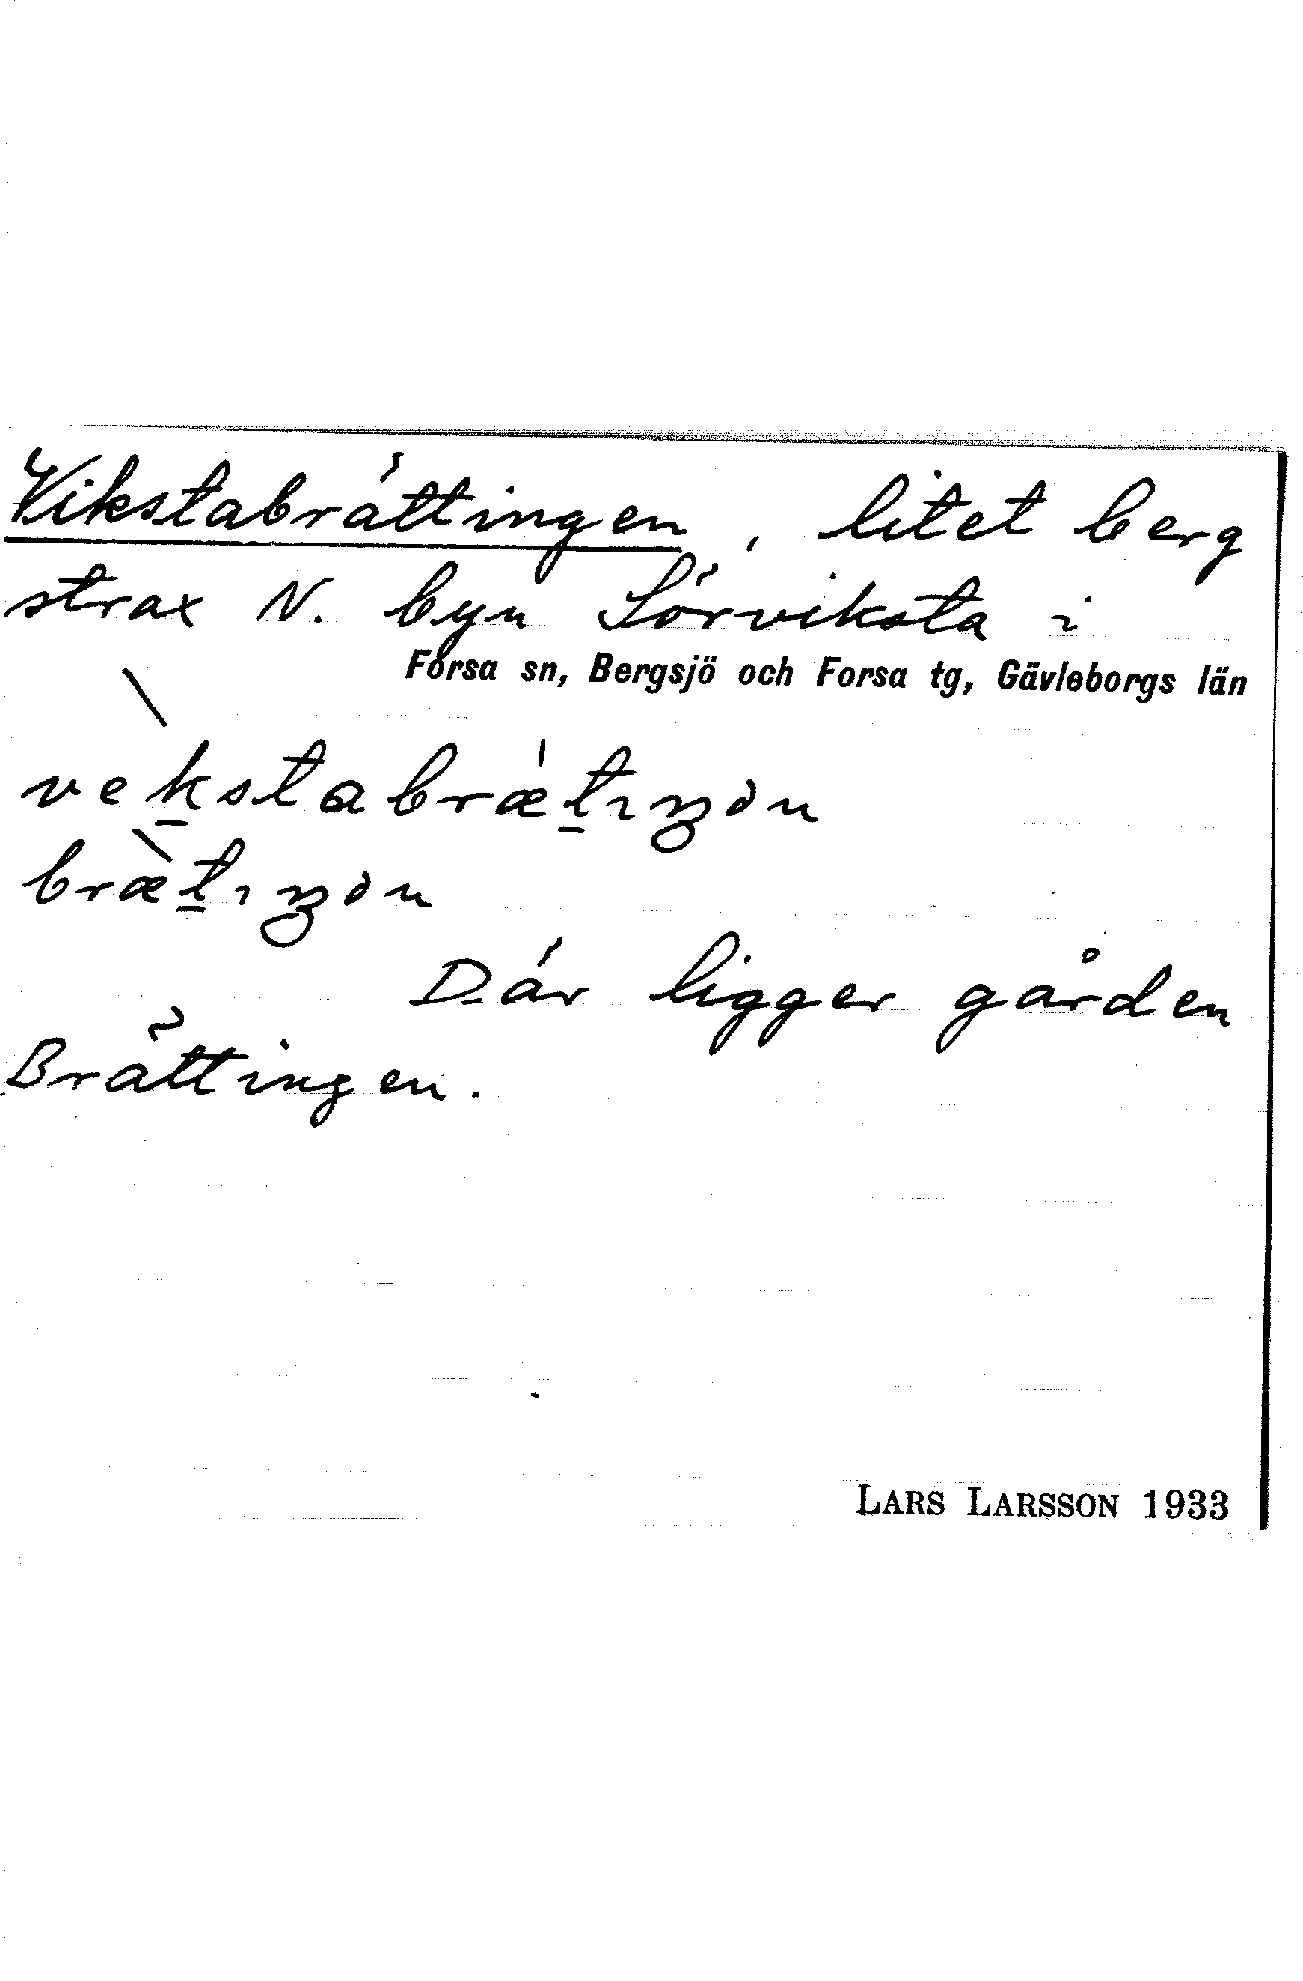 Vikstabrättingen, litet berg
strax N. byn Sörviksta i
Forsa sn, Bergsjö och Forsa tg, Gävleborgs län
vèk̲stabræ̍t̲ıŋən
bræ̀t̲ıŋən
Där ligger gården
Brättingen.
LARS LARSSON 1933